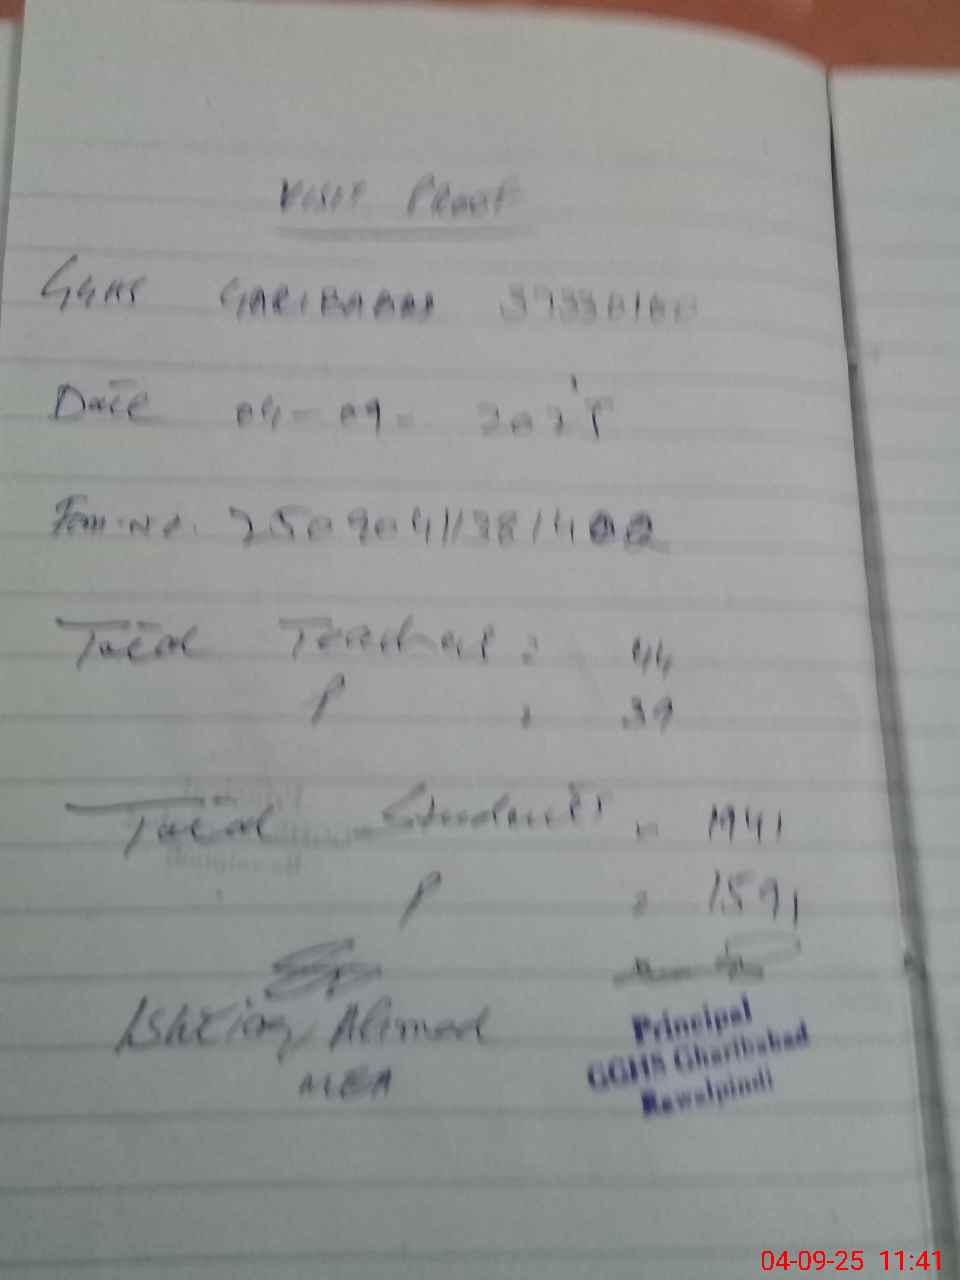 Visit Proof
GGHS GARIBABAD 37330180
Date 04-09-2025
Fom.No. 250904113814
Total Teachers : 44
P : 39
Total Students = 1941
P = 1591
Ishtiaq Ahmad
MEA
Principal
GGHS Gharibabad
Rawalpindi
04-09-25 11:41